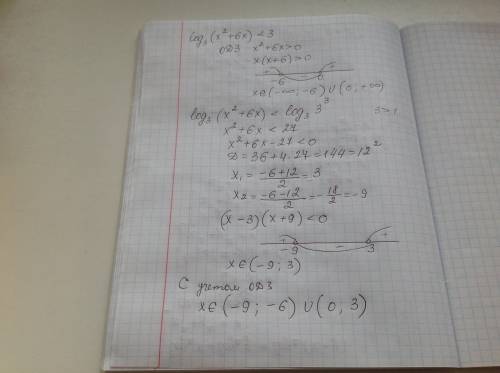 log₃(x²+6x) < 3
ОДЗ x²+6x>0
x(x+6)>0
+ - +
-6 0
x∈(-∞; -6) ∪ (0; +∞)
log₃(x²+6x) < log₃ 3³ 3>1
x²+6x < 27
x²+6x-27<0
D=36+4·27=144=12²
x₁ = (-6+12)/2 = 3
x₂ = (-6-12)/2 = -18/2 = -9
(x-3)(x+9)<0
+ - +
-9 3
x∈(-9; 3)
С учетом ОДЗ
x∈(-9; -6) ∪ (0, 3)